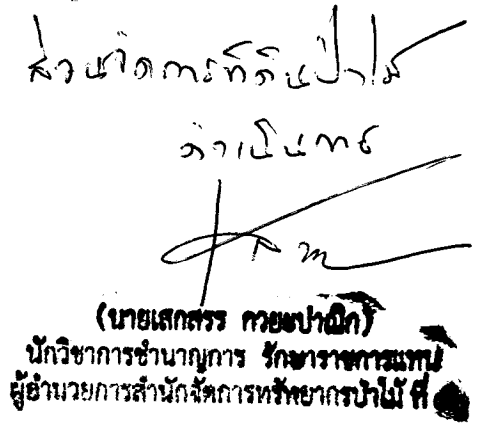 ส่วนจัดการที่ดินป่าไม้
ดำเนินการ
(นายเสกสรร กวยะปาณิก)
นักวิชาการชำนาญการ รักษาราชการแทน
ผู้อำนวยการสำนักจัดการทรัพยากรป่าไม้ ที่